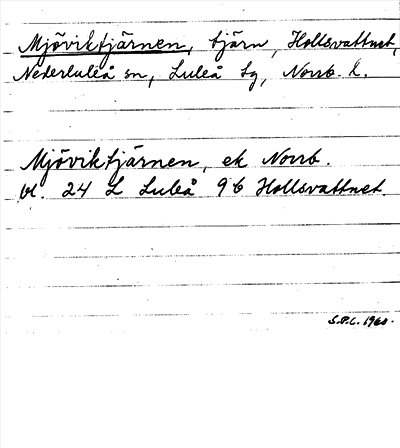 Mjöviktjärnen, tjärn, Hollsvattnet,
Nederluleå sn, Luleå tg, Norrb. l.
Mjöviktjärnen, ek Norrb.
bl. 24 L Luleå 9 b Hollsvattnet.
S.P.L. 1960.